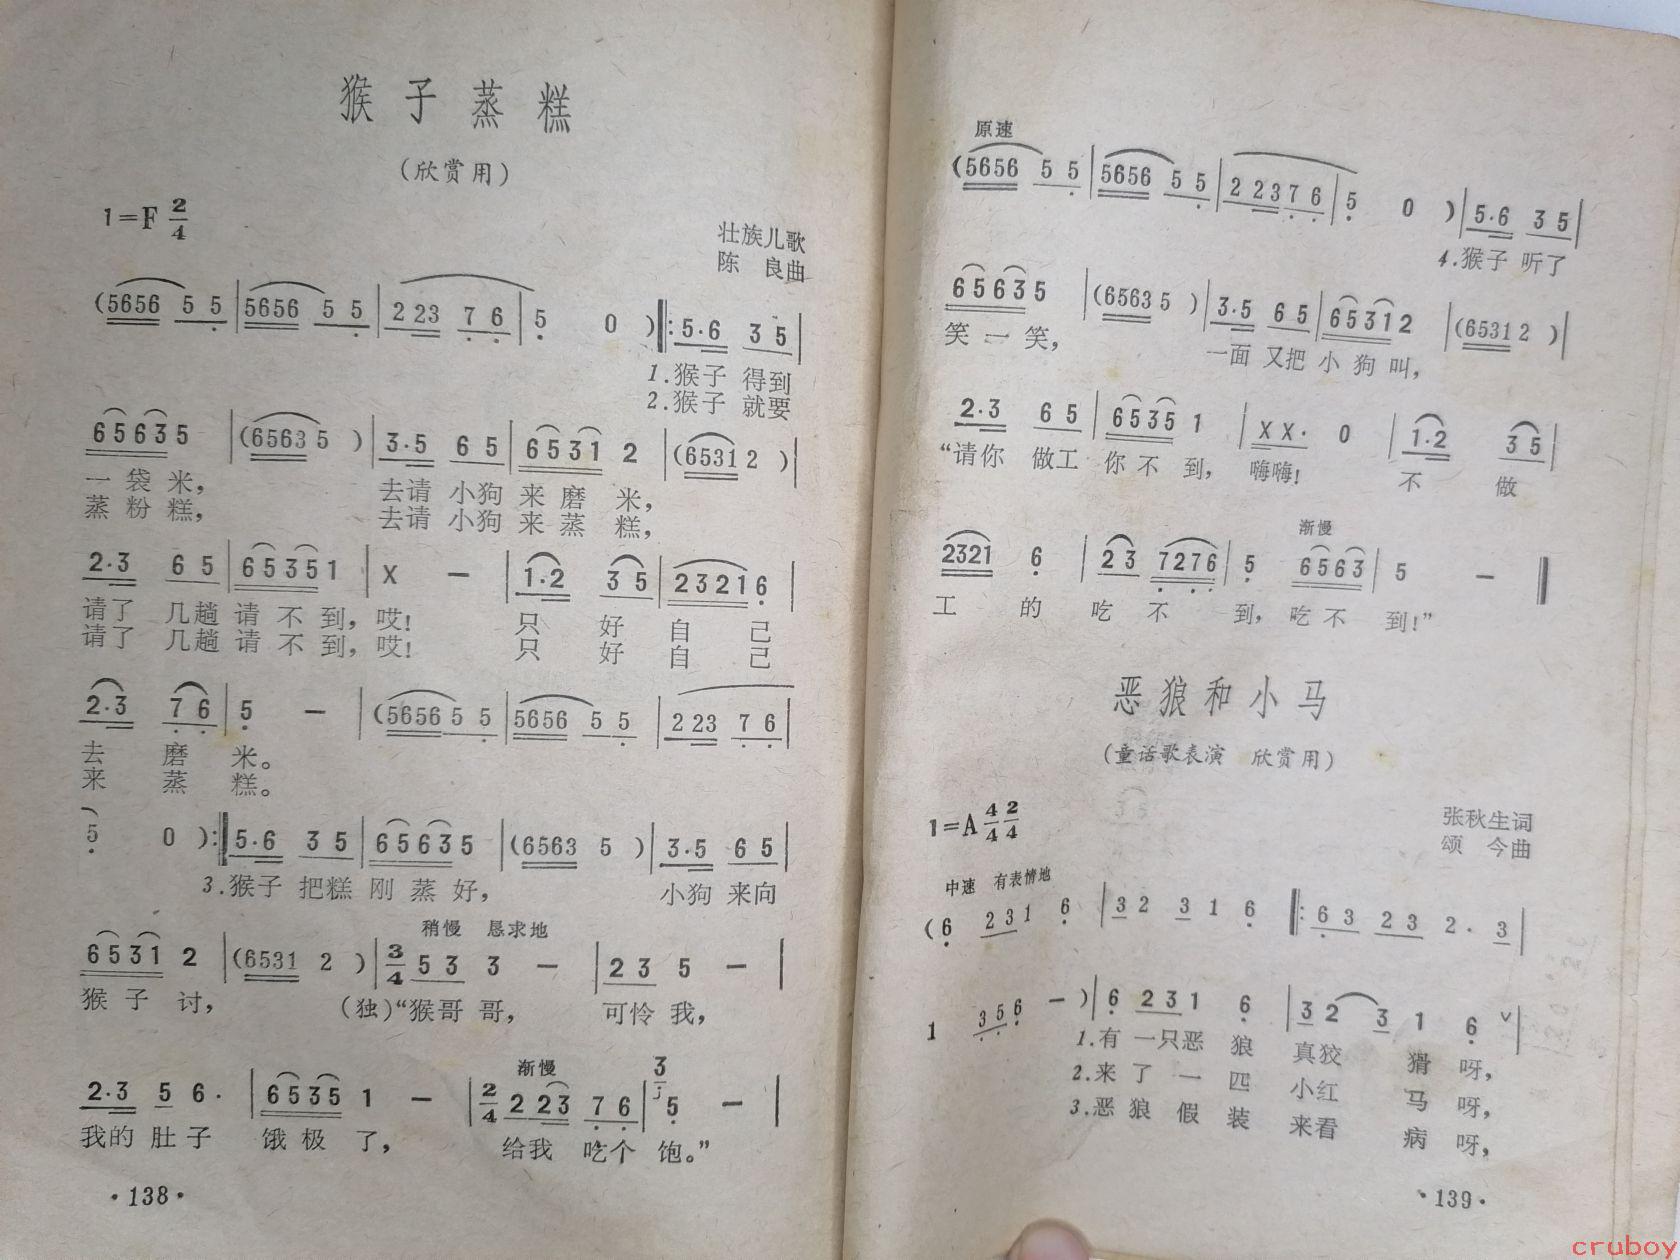 猴子蒸糕
(欣赏用)
1=F 2/4
壮族儿歌
陈 良曲
(5656 5 5 | 5656 5 5 | 2 23 7 6 | 5 0 ) ‖: 5·6 3 5 |
1.猴子 得到
2.猴子 就要
65635 | (6563 5 ) | 3·5 6 5 | 6531 2 | (6531 2 ) |
一 袋 米, 去请 小狗 来 磨 米,
蒸 粉 糕, 去请 小狗 来 蒸 糕,
2·3 6 5 | 65351 | X － | 1·2 3 5 | 23216 |
请了 几趟 请 不 到, 哎! 只 好 自 己
请了 几趟 请 不 到, 哎! 只 好 自 己
2·3 7 6 | 5 － | (5656 5 5 | 5656 5 5 | 2 23 7 6 |
去 磨 米。
来 蒸 糕。
5 0 ) :‖ 5·6 3 5 | 65635 | (6563 5 ) | 3·5 6 5 |
3.猴子 把糕 刚 蒸 好, 小狗 来向
稍慢 恳求地
6531 2 | (6531 2 ) | 3/4 5 3 3 － | 2 3 5 － |
猴 子 讨, (独)“猴哥 哥, 可怜 我,
渐慢
2·3 5 6· | 6535 1 － | 2/4 2 23 7 6 | 3 5 － |
我的 肚 子 饿 极 了, 给我 吃个 饱。”
·138·
原速
(5656 5 5 | 5656 5 5 | 2 2376 | 5 0 ) | 5·6 3 5 |
4.猴子 听了
65635 | (6563 5 ) | 3·5 6 5 | 65312 | (6531 2 ) |
笑 一 笑, 一面 又把 小 狗 叫,
2·3 6 5 | 6535 1 | X X· 0 | 1·2 3 5 |
“请你 做工 你 不 到, 嗨嗨! 不 做
渐慢
2321 6 | 2 3 7276 | 5 6563 | 5 － ‖
工 的 吃 不 到, 吃 不 到!”
恶狼和小马
(童话歌表演 欣赏用)
1=A 4/4 2/4
张秋生词
颂 今曲
中速 有表情地
(6 231 6 | 3 2 3 1 6 ‖: 6 3 2 3 2· 3 |
1 356 － ) | 6 231 6 | 3 2 3 1 6 ∨ |
1.有 一只恶 狼 真狡 猾 呀,
2.来 了 一 匹 小红 马 呀,
3.恶 狼 假 装 来看 病 呀,
·139·
cruboy